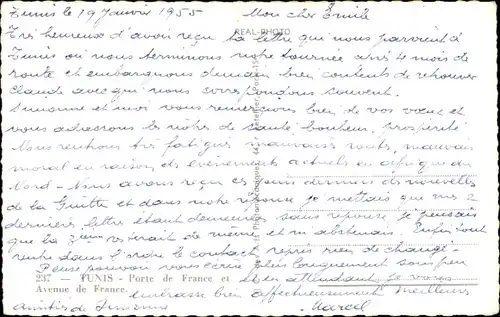 Tunis le 19 Janvier 1955 Mon cher Emile
REAL-PHOTO
Très heureux d'avoir reçu ta lettre qui nous parvient à
Tunis où nous terminons notre tournée après 4 mois de
route et embarquons demain bien contents de retrouver
Claude avec qui nous correspondons souvent.
Simonne et moi vous remercions bien de vos vœux et
vous adressons les nôtres de santé bonheur, prospérité.
Nous rentrons très fatigués, mauvaises routes, mauvais
moral en raison des événements actuels en Afrique du
Nord - Nous avons reçu ces jours derniers des nouvelles
de la Guitte et dans notre réponse je mettais que mes 2
dernières lettres étant demeurées sans réponse je pensais
que la 3ème resterait de même et m'abstenais. Enfin tout
rentre dans l'ordre le contact repris rien de changé.
Pense pouvoir vous écrire plus longuement sous peu
237 — TUNIS - Porte de France et en attendant je vous
Avenue de France. embrasse bien affectueusement Meilleurs
amitiés de Simonne Marcel